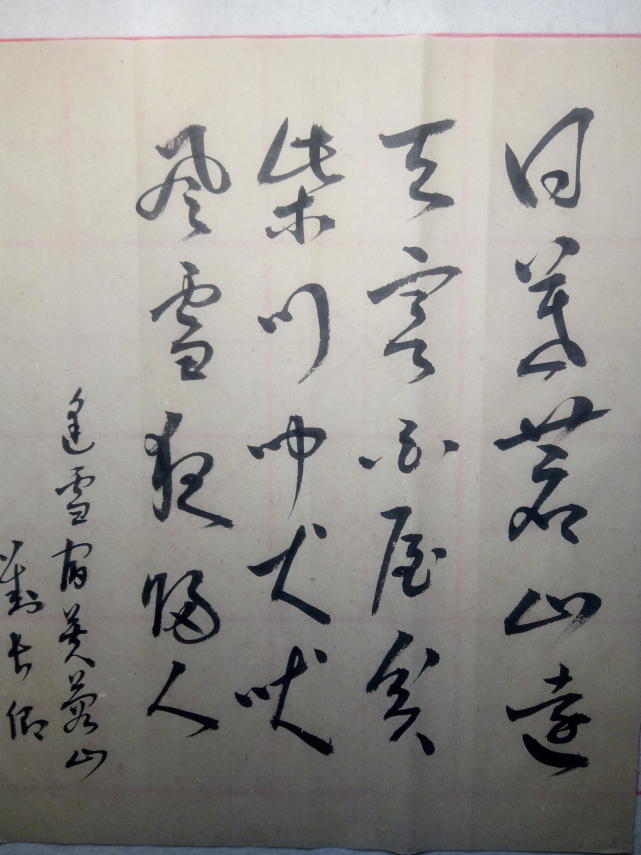 日暮蒼山遠
天寒白屋貧
柴門聞犬吠
風雪夜歸人
逢雪宿芙蓉山
劉長卿